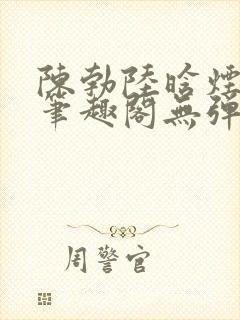 陳勃陸晗煙
筆趣閣無彈
周警官